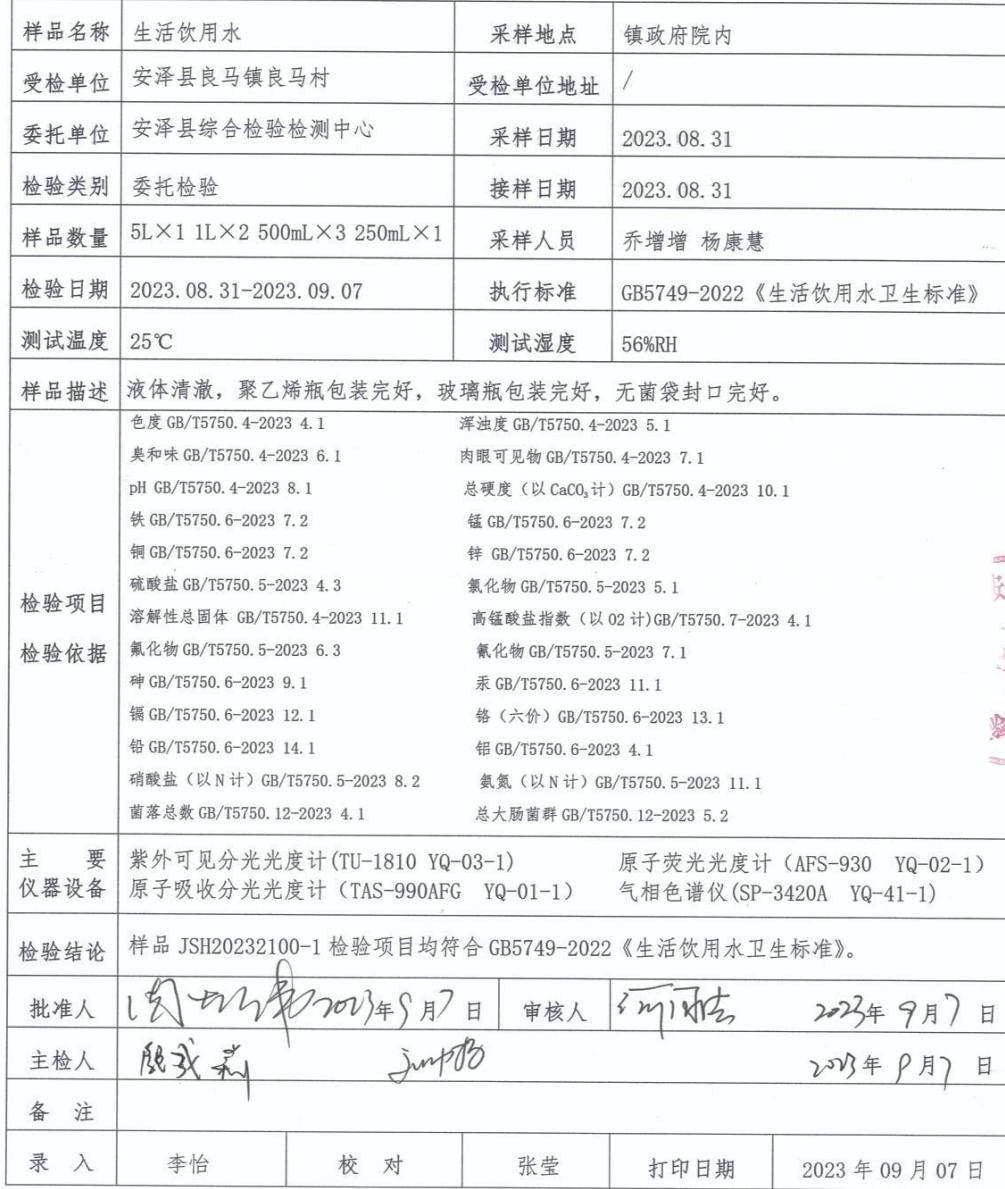 样品名称 生活饮用水 采样地点 镇政府院内
受检单位 安泽县良马镇良马村 受检单位地址 /
委托单位 安泽县综合检验检测中心 采样日期 2023.08.31
检验类别 委托检验 接样日期 2023.08.31
样品数量 5L×1 1L×2 500mL×3 250mL×1 采样人员 乔增增 杨康慧
检验日期 2023.08.31-2023.09.07 执行标准 GB5749-2022《生活饮用水卫生标准》
测试温度 25℃ 测试湿度 56%RH
样品描述 液体清澈，聚乙烯瓶包装完好，玻璃瓶包装完好，无菌袋封口完好。
检验项目
检验依据
色度 GB/T5750.4-2023 4.1 浑浊度 GB/T5750.4-2023 5.1
臭和味 GB/T5750.4-2023 6.1 肉眼可见物 GB/T5750.4-2023 7.1
pH GB/T5750.4-2023 8.1 总硬度（以 CaCO₃计）GB/T5750.4-2023 10.1
铁 GB/T5750.6-2023 7.2 锰 GB/T5750.6-2023 7.2
铜 GB/T5750.6-2023 7.2 锌 GB/T5750.6-2023 7.2
硫酸盐 GB/T5750.5-2023 4.3 氯化物 GB/T5750.5-2023 5.1
溶解性总固体 GB/T5750.4-2023 11.1 高锰酸盐指数（以 O2 计)GB/T5750.7-2023 4.1
氟化物 GB/T5750.5-2023 6.3 氰化物 GB/T5750.5-2023 7.1
砷 GB/T5750.6-2023 9.1 汞 GB/T5750.6-2023 11.1
镉 GB/T5750.6-2023 12.1 铬（六价）GB/T5750.6-2023 13.1
铅 GB/T5750.6-2023 14.1 铝 GB/T5750.6-2023 4.1
硝酸盐（以 N 计）GB/T5750.5-2023 8.2 氨氮（以 N 计）GB/T5750.5-2023 11.1
菌落总数 GB/T5750.12-2023 4.1 总大肠菌群 GB/T5750.12-2023 5.2
主 要
仪器设备
紫外可见分光光度计(TU-1810 YQ-03-1) 原子荧光光度计（AFS-930 YQ-02-1）
原子吸收分光光度计（TAS-990AFG YQ-01-1） 气相色谱仪(SP-3420A YQ-41-1)
检验结论 样品 JSH20232100-1 检验项目均符合 GB5749-2022《生活饮用水卫生标准》。
批准人 2023年9月7日 审核人 2023年9月7日
主检人 2023年9月7日
备 注
录 入 李怡 校 对 张莹 打印日期 2023 年 09 月 07 日